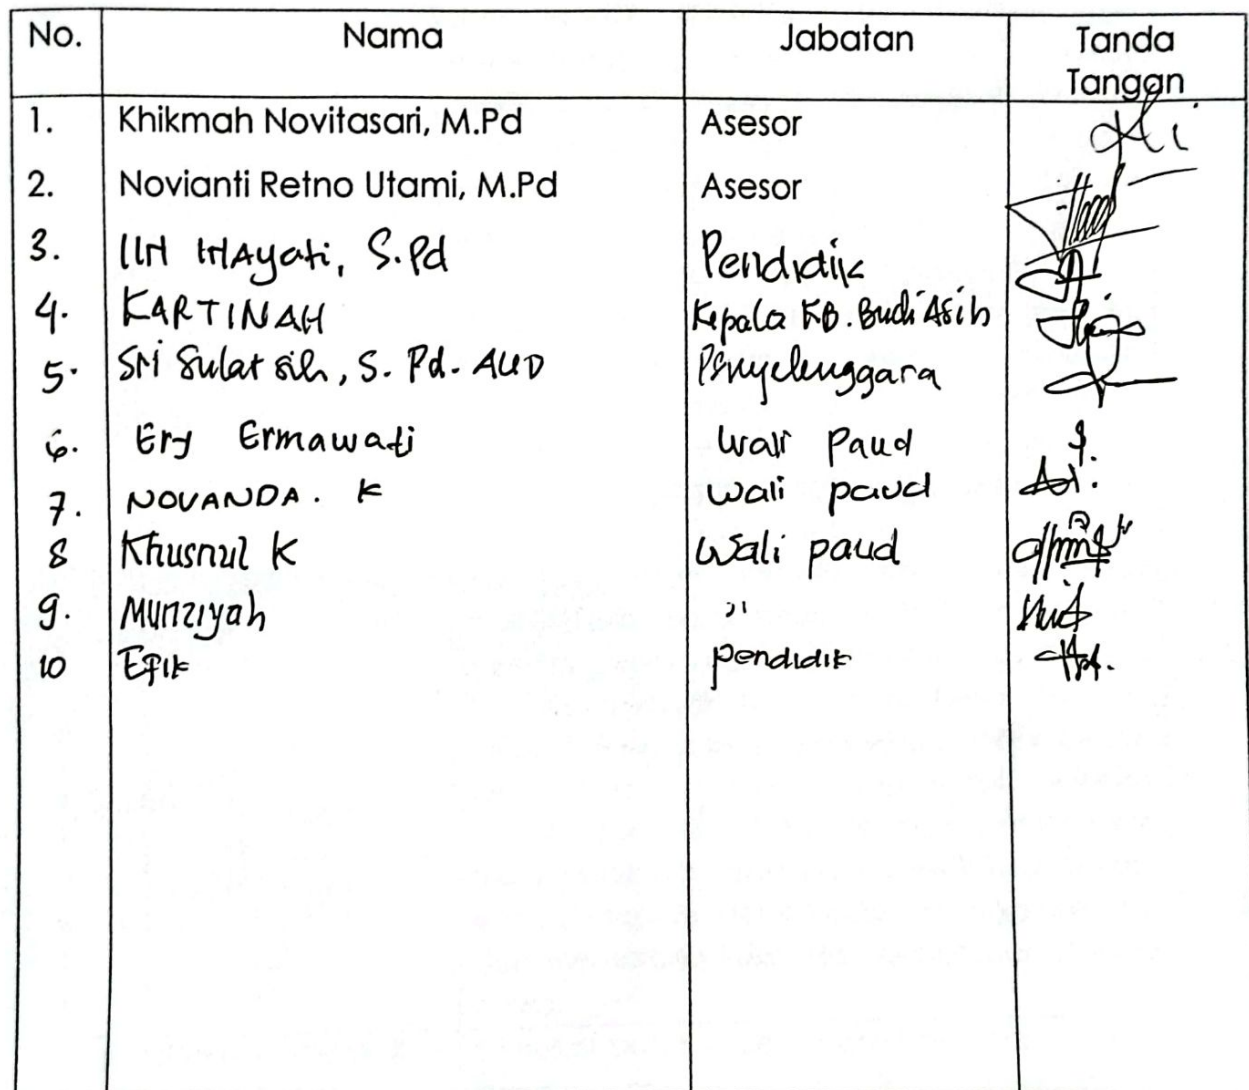 No. Nama Jabatan Tanda
Tangan
1. Khikmah Novitasari, M.Pd Asesor
2. Novianti Retno Utami, M.Pd Asesor
3. IIH Hayati, S.Pd Pendidik
4. KARTINAH Kepala KB. Budi Asih
5. Sri Sulatsih, S. Pd. AUD Penyelenggara
6. Ery Ermawati wali Paud
7. NOVANDA. K wali paud
8 Khusnul K Wali paud
9. Munziyah "
10 Efik pendidik